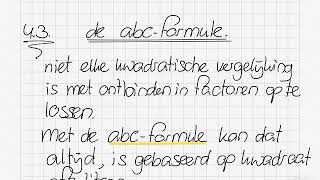 4.3. de abc-formule.
niet elke kwadratische vergelijking
is met ontbinden in factoren op te
lossen.
Met de abc-formule kan dat
altijd, is gebaseerd op kwadraat